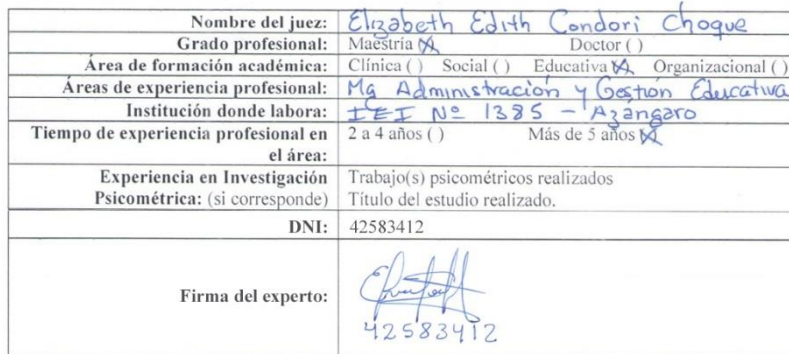 Nombre del juez: Elizabeth Edith Condori Choque
Grado profesional: Maestría (X) Doctor ( )
Área de formación académica: Clínica ( ) Social ( ) Educativa (X) Organizacional ( )
Áreas de experiencia profesional: Mg Administración y Gestión Educativa
Institución donde labora: IEI Nº 1385 - Azángaro
Tiempo de experiencia profesional en 2 a 4 años ( ) Más de 5 años (X)
el área:
Experiencia en Investigación Trabajo(s) psicométricos realizados
Psicométrica: (si corresponde) Título del estudio realizado.
DNI: 42583412
Firma del experto:
42583412